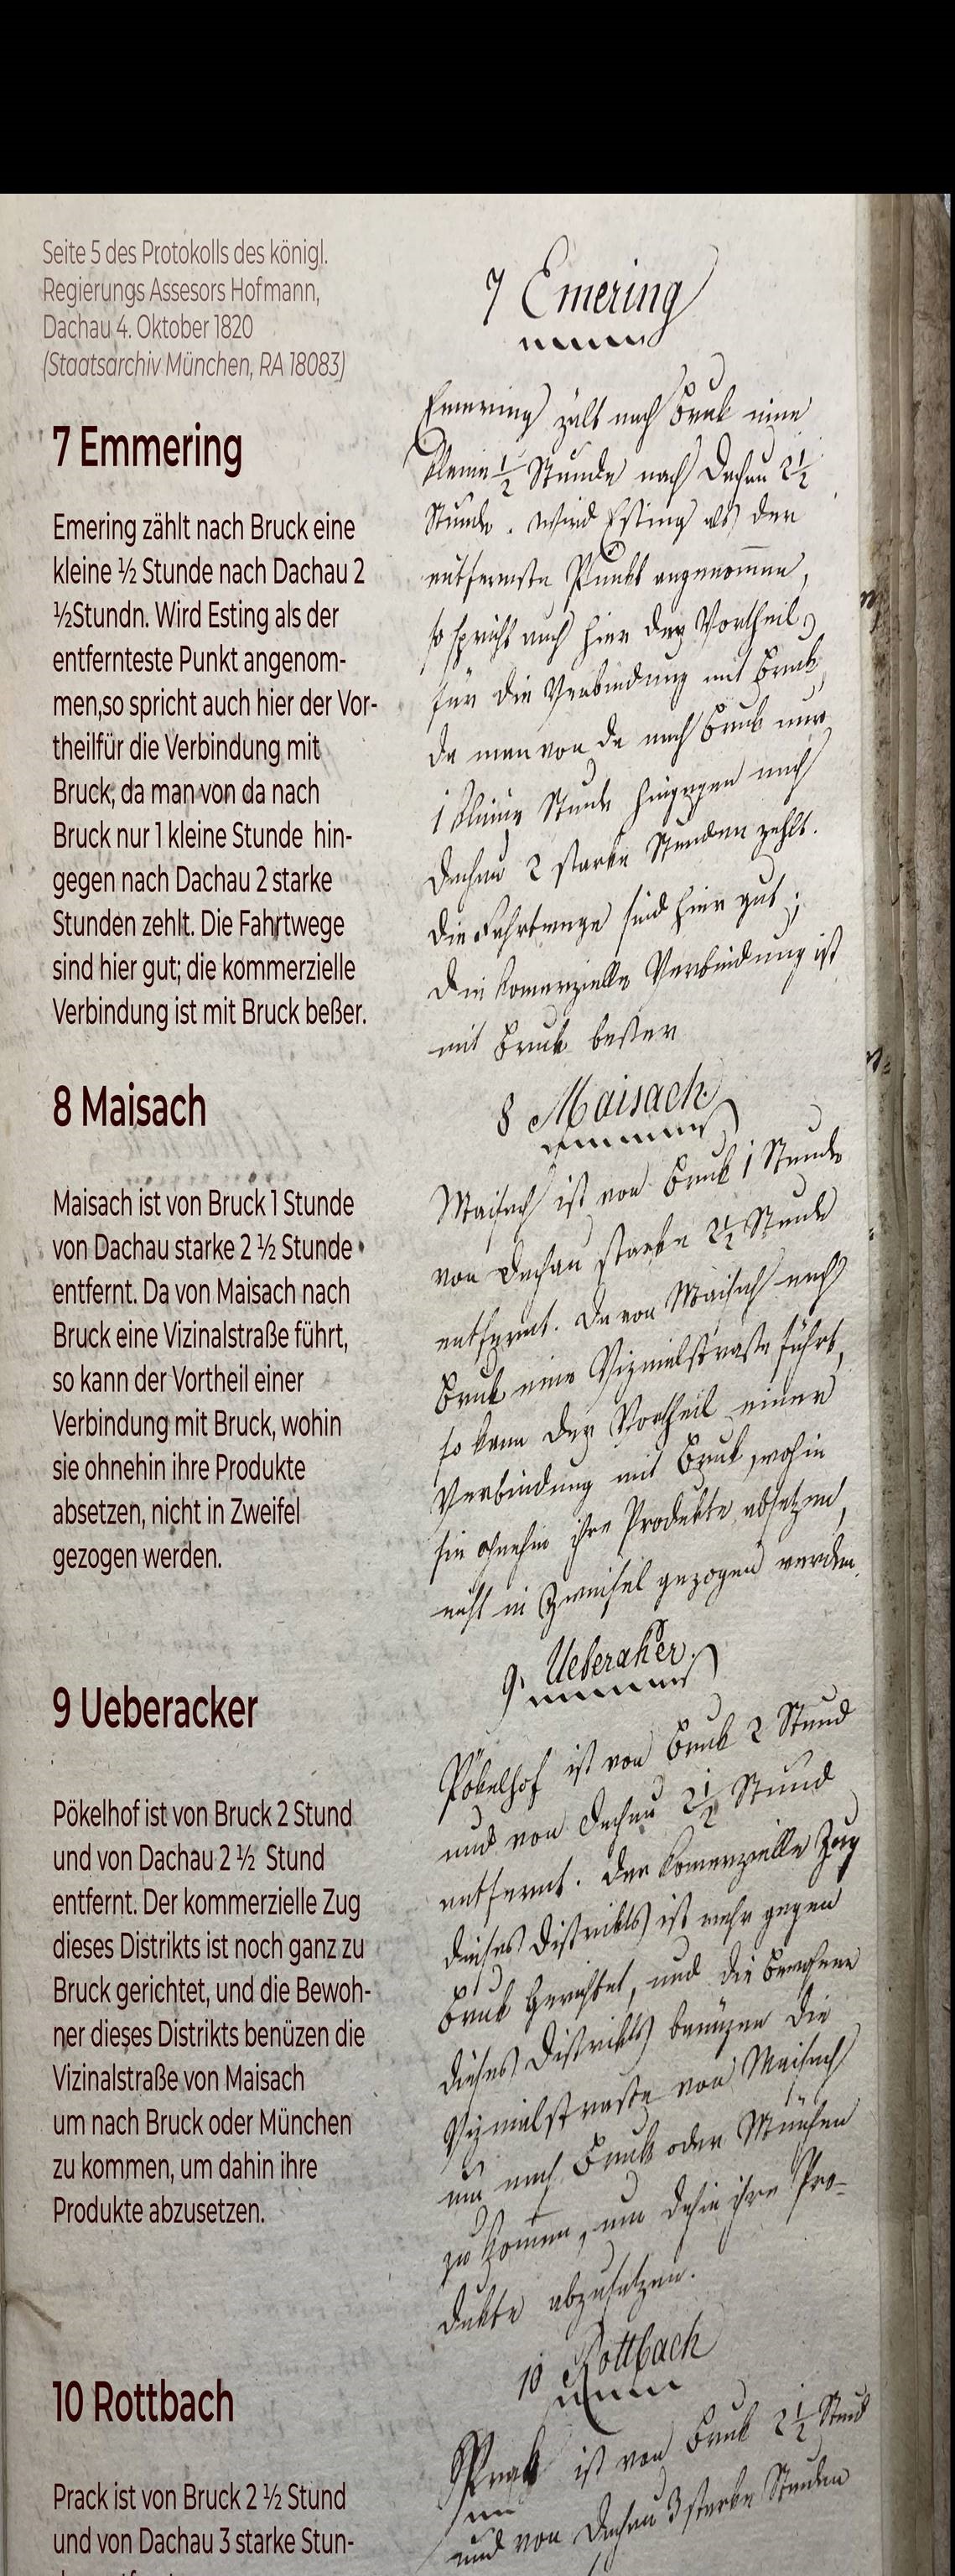 Seite 5 des Protokolls des königl.
Regierungs Assesors Hofmann,
Dachau 4. Oktober 1820
(Staatsarchiv München, RA 18083)
7 Emmering
Emering zählt nach Bruck eine
kleine ½ Stunde nach Dachau 2
½Stundn. Wird Esting als der
entfernteste Punkt angenom-
men,so spricht auch hier der Vor-
theilfür die Verbindung mit
Bruck, da man von da nach
Bruck nur 1 kleine Stunde hin-
gegen nach Dachau 2 starke
Stunden zehlt. Die Fahrtwege
sind hier gut; die kommerzielle
Verbindung ist mit Bruck beßer.
8 Maisach
Maisach ist von Bruck 1 Stunde
von Dachau starke 2 ½ Stunde
entfernt. Da von Maisach nach
Bruck eine Vizinalstraße führt,
so kann der Vortheil einer
Verbindung mit Bruck, wohin
sie ohnehin ihre Produkte
absetzen, nicht in Zweifel
gezogen werden.
9 Ueberacker
Pökelhof ist von Bruck 2 Stund
und von Dachau 2 ½ Stund
entfernt. Der kommerzielle Zug
dieses Distrikts ist noch ganz zu
Bruck gerichtet, und die Bewoh-
ner dieses Distrikts benüzen die
Vizinalstraße von Maisach
um nach Bruck oder München
zu kommen, um dahin ihre
Produkte abzusetzen.
10 Rottbach
Prack ist von Bruck 2 ½ Stund
und von Dachau 3 starke Stun-
7 Emering
Emering zält nach Bruk eine
kleine ½ Stunde nach Dachau 2½
Stunde. Wird Esting als der
entfernste Punkt angenom̄en,
so spricht auch hier der Vortheil
für die Verbindung mit Bruk,
da man von da nach Bruk nur
1 kleine Stunde hingegen nach
Dachau 2 starke Stunden zehlt.
Die Fahrtwege sind hier gut;
die komerzielle Verbindung ist
mit Bruk beßer
8 Maisach.
Maisach ist von Bruk 1 Stunde
von Dachau starke 2½ Stunde
entfernt. Da von Maisach nach
Bruk eine Vizinalstraße führt,
so kann der Vortheil einer
Verbindung mit Bruk, wohin
sie ohnehin ihre Produkte absetzen,
nicht in Zweifel gezogen werden.
9. Ueberaker.
Pökelhof ist von Bruk 2 Stund
und von Dachau 2½ Stund
entfernt. Der komerzielle Zug
dieses Distrikts ist mehr gegen
Bruk gerichtet, und die Bewohner
dieses Distrikts benüzen die
Vizinalstraße von Maisach
um nach Bruk oder München
zu kom̄en, um dahin ihre Pro-
dukte abzusetzen.
10 Rottbach
Prak ist von Bruk 2½ Stund
und von Dachau 3 starke Stunden